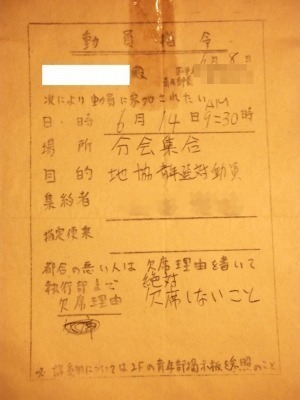 動員指令
6月8日
殿
青年部
次により動員に参加されたい
日時 6月14日AM9:30時
場所 分会集合
目的 地協 動員
集約者
指定便来
都合の悪い人は欠席理由を書いて
執行部まで 絶対
欠席理由 欠席しないこと
については2Fの青年部掲示板を参照のこと